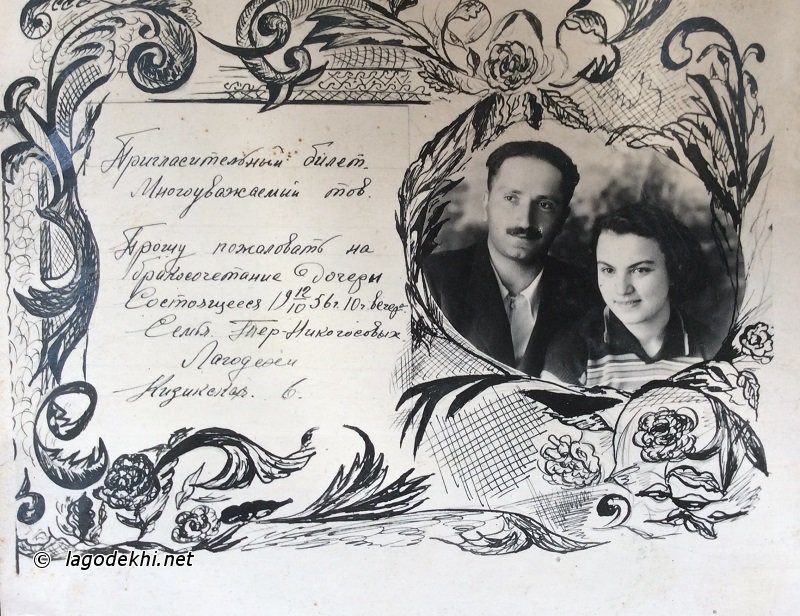 Пригласительный билет.
Многоуважаемый тов.
Прошу пожаловать на
бракосочетание дочеры
Состоящееся 19 12/10 56 г. 10 г. вечера
Семья Тер-Никогосовых
Лагодехи
Кизикская 6.
© lagodekhi.net